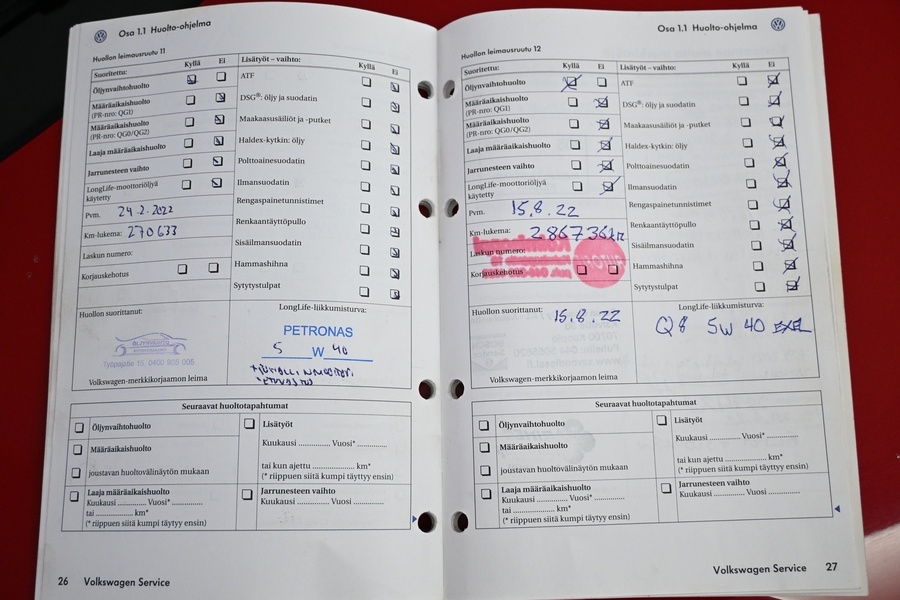 Osa 1.1 Huolto-ohjelma
Huollon leimausruutu 11
Suoritettu: Kyllä Ei
Öljynvaihtohuolto
Määräaikaishuolto
(PR-nro: QG1)
Määräaikaishuolto
(PR-nro: QG0/QG2)
Laaja määräaikaishuolto
Jarrunesteen vaihto
LongLife-moottoriöljyä
käytetty
Pvm. 24.2.2022
Km-lukema: 270633
Laskun numero:
Korjauskehotus
Lisätyöt – vaihto: Kyllä Ei
ATF
DSG®: öljy ja suodatin
Maakaasusäiliöt ja -putket
Haldex-kytkin: öljy
Polttoainesuodatin
Ilmansuodatin
Rengaspainetunnistimet
Renkaantäyttöpullo
Sisäilmansuodatin
Hammashihna
Sytytystulpat
Huollon suorittanut:
Työpajatie 15, 0400 905 006
Volkswagen-merkkikorjaamon leima
LongLife-liikkumisturva:
PETRONAS
5 W 40
Seuraavat huoltotapahtumat
Öljynvaihtohuolto
Määräaikaishuolto
joustavan huoltovälinäytön mukaan
Laaja määräaikaishuolto
Kuukausi .............. Vuosi* ................
tai .................... km*
(* riippuen siitä kumpi täytyy ensin)
Lisätyöt
Kuukausi .............. Vuosi* ..............
tai kun ajettu .................. km*
(* riippuen siitä kumpi täytyy ensin)
Jarrunesteen vaihto
Kuukausi .............. Vuosi ..............
26 Volkswagen Service
Osa 1.1 Huolto-ohjelma
Huollon leimausruutu 12
Suoritettu: Kyllä Ei
Öljynvaihtohuolto
Määräaikaishuolto
(PR-nro: QG1)
Määräaikaishuolto
(PR-nro: QG0/QG2)
Laaja määräaikaishuolto
Jarrunesteen vaihto
LongLife-moottoriöljyä
käytetty
Pvm. 15.8.22
Km-lukema: 286736km
Laskun numero:
Korjauskehotus
Lisätyöt – vaihto: Kyllä Ei
ATF
DSG®: öljy ja suodatin
Maakaasusäiliöt ja -putket
Haldex-kytkin: öljy
Polttoainesuodatin
Ilmansuodatin
Rengaspainetunnistimet
Renkaantäyttöpullo
Sisäilmansuodatin
Hammashihna
Sytytystulpat
Huollon suorittanut: 15.8.22
Volkswagen-merkkikorjaamon leima
LongLife-liikkumisturva:
Q8 5W 40
Seuraavat huoltotapahtumat
Öljynvaihtohuolto
Määräaikaishuolto
joustavan huoltovälinäytön mukaan
Laaja määräaikaishuolto
Kuukausi .............. Vuosi* ................
tai .................... km*
(* riippuen siitä kumpi täytyy ensin)
Lisätyöt
Kuukausi .............. Vuosi* ..............
tai kun ajettu .................. km*
(* riippuen siitä kumpi täytyy ensin)
Jarrunesteen vaihto
Kuukausi .............. Vuosi ..............
Volkswagen Service 27